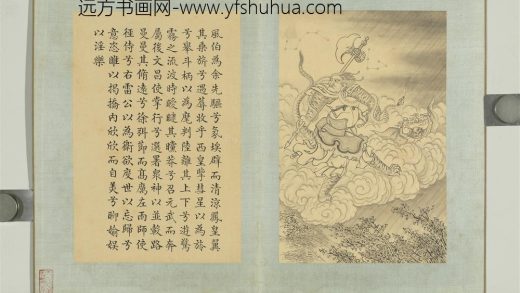 远方书画网-www.yfshuhua.com
風伯為余先驅兮氛埃辟而清涼鳳皇翼
其承旂兮遇蓐收乎西皇擥彗星以為旍
兮舉斗柄以為麾判陸離其上下兮遊驚
霧之流波時曖曃其曭莽兮召元武而奔
屬後文昌使掌行兮選署眾神以並轂路
曼曼其脩遠兮徐弭節而高厲左雨師使
徑侍兮右雷公以為衛欲度世以忘歸兮
意恣睢以揭撟內欣欣而自美兮聊媮娛
以淫樂